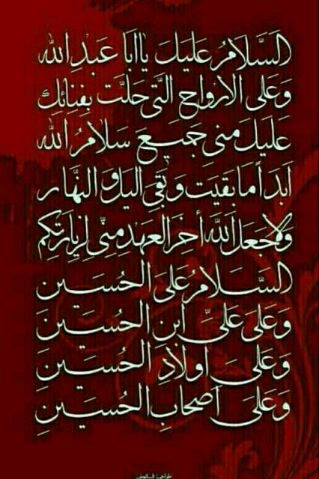 السلام عليك يا ابا عبد الله
وعلى الارواح التي حلت بفنائك
عليك مني جميع سلام الله
ابدا ما بقيت وبقي اليل و النهار
ولا جعل الله أخر العهد مني لزيارتكم
السلام على الحسين
وعلى علي ابن الحسين
وعلى اولاد الحسين
وعلى اصحاب الحسين